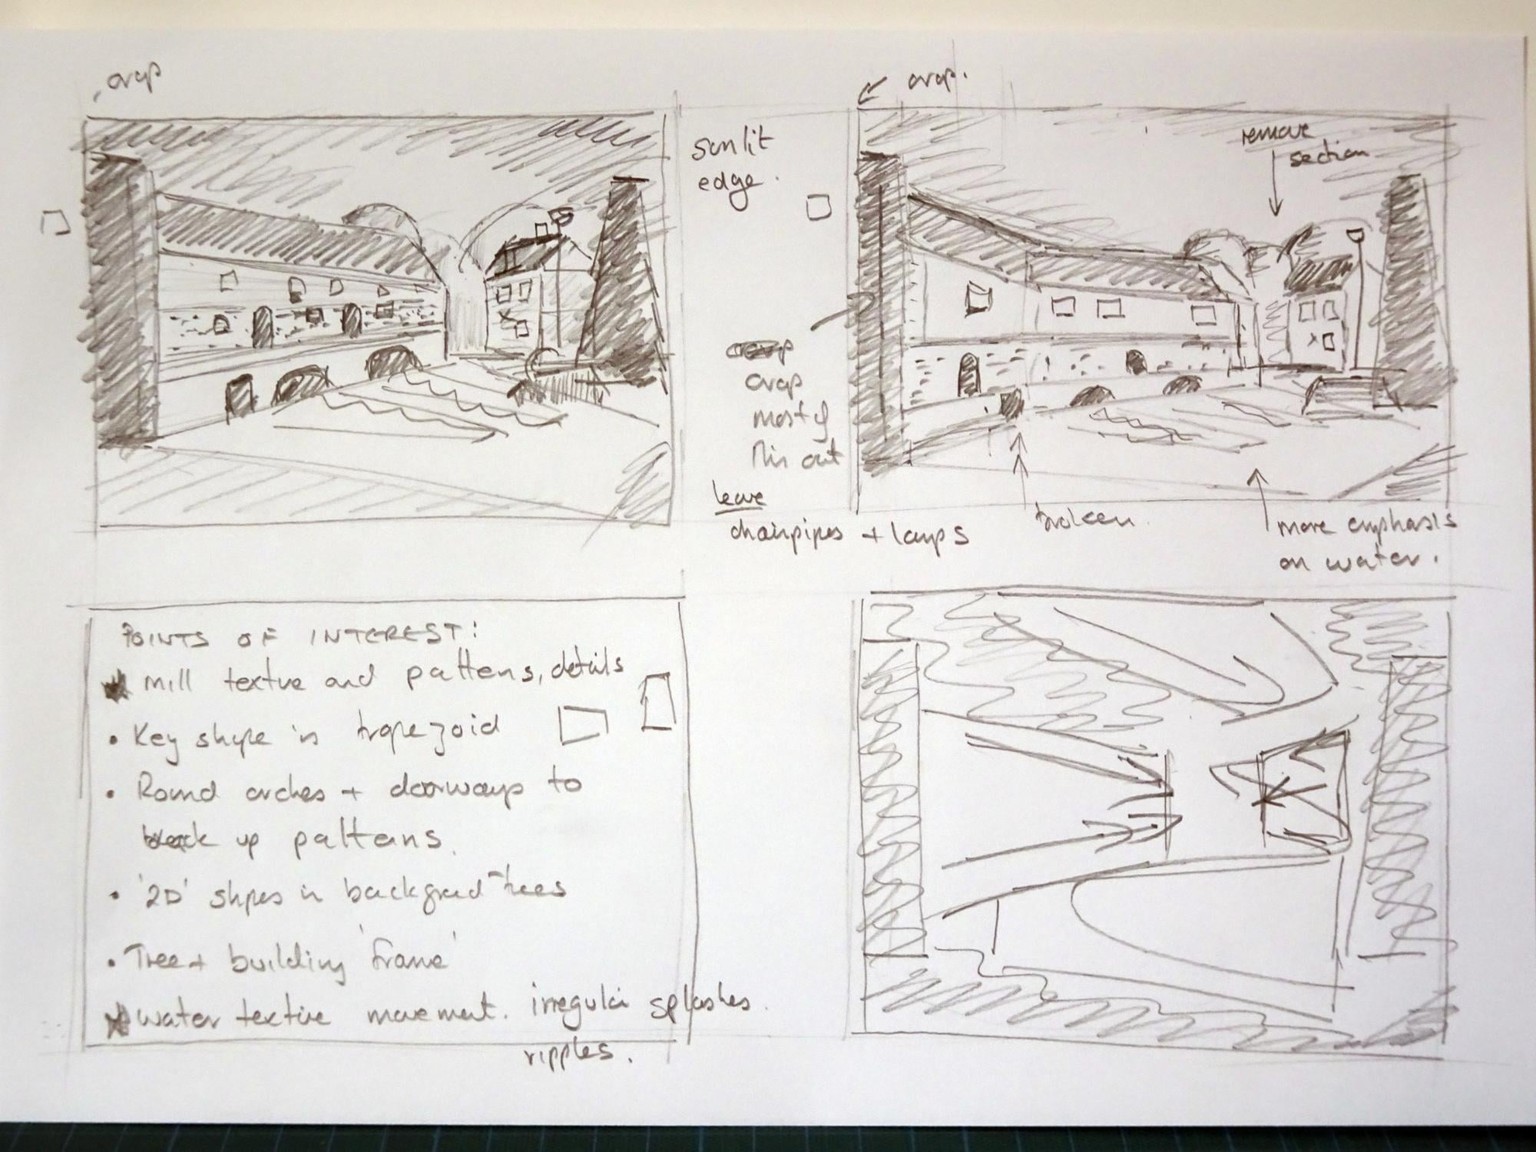 crop
crop.
sunlit
edge.
remove
section
crop
most of
this out
leave
chainpipes + lamps
broken.
more emphasis
on water.
POINTS OF INTEREST:
mill texture and pattens, details
• Key shape is trapezoid
• Round arches + doorways to
break up pattens.
• '2D' shpes in backgrund trees
• Tree + building 'frame'
water textire movement. irregular splashes
ripples.